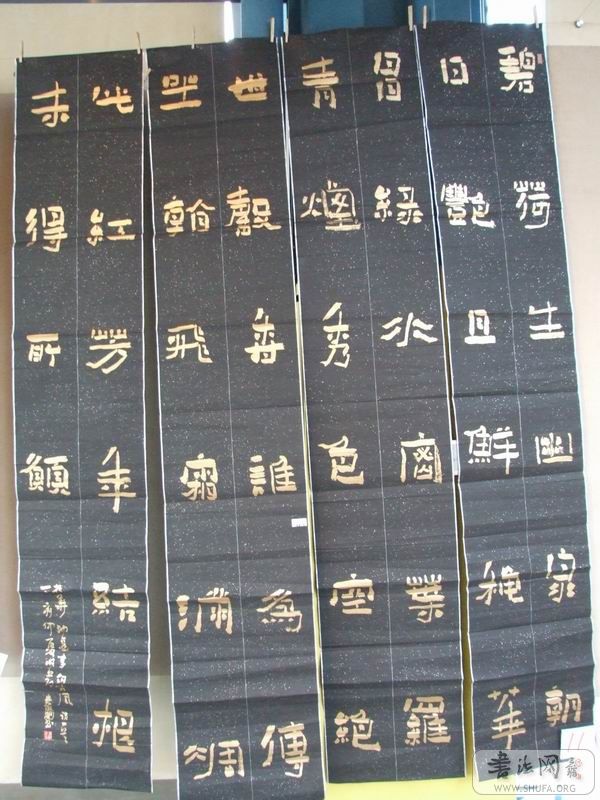 碧荷生幽泉朝
日艷且鮮秋華
冒綠水密葉羅
青煙秀色空絕
世馨香誰為傳
坐看飛霜滿凋
此紅芳年結根
未得所願
書法网
WWW.SHUFA.ORG